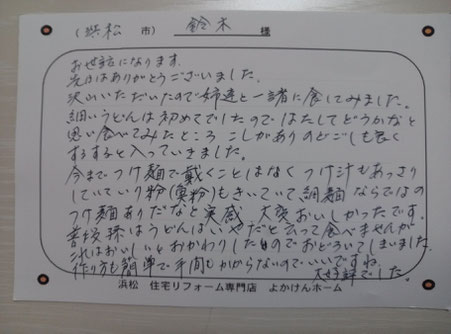 (浜松 市) 鈴木 様
お世話になります。
先日はありがとうございました。
沢山いただいたので姉達と一諸に食してみました。
細いうどんは初めてでしたのではたしてどうかなと
思い食べてみたところ こしがありのどごしも良く
するすると入っていきました。
今までつけ麺で戴くことはなくつけ汁もあっさり
していていり粉(魚粉)もきいていて、細麺ならではの
つけ麺ありだなと実感 大変おいしかったです。
普段孫はうどんはいやだと云って食べませんが
これはおいしいとおかわりしたのでおどろいてしまいました。
作り方も簡単で手間もかからないのでいいですね
大好評でした。
浜松 住宅リフォーム専門店 よかけんホーム